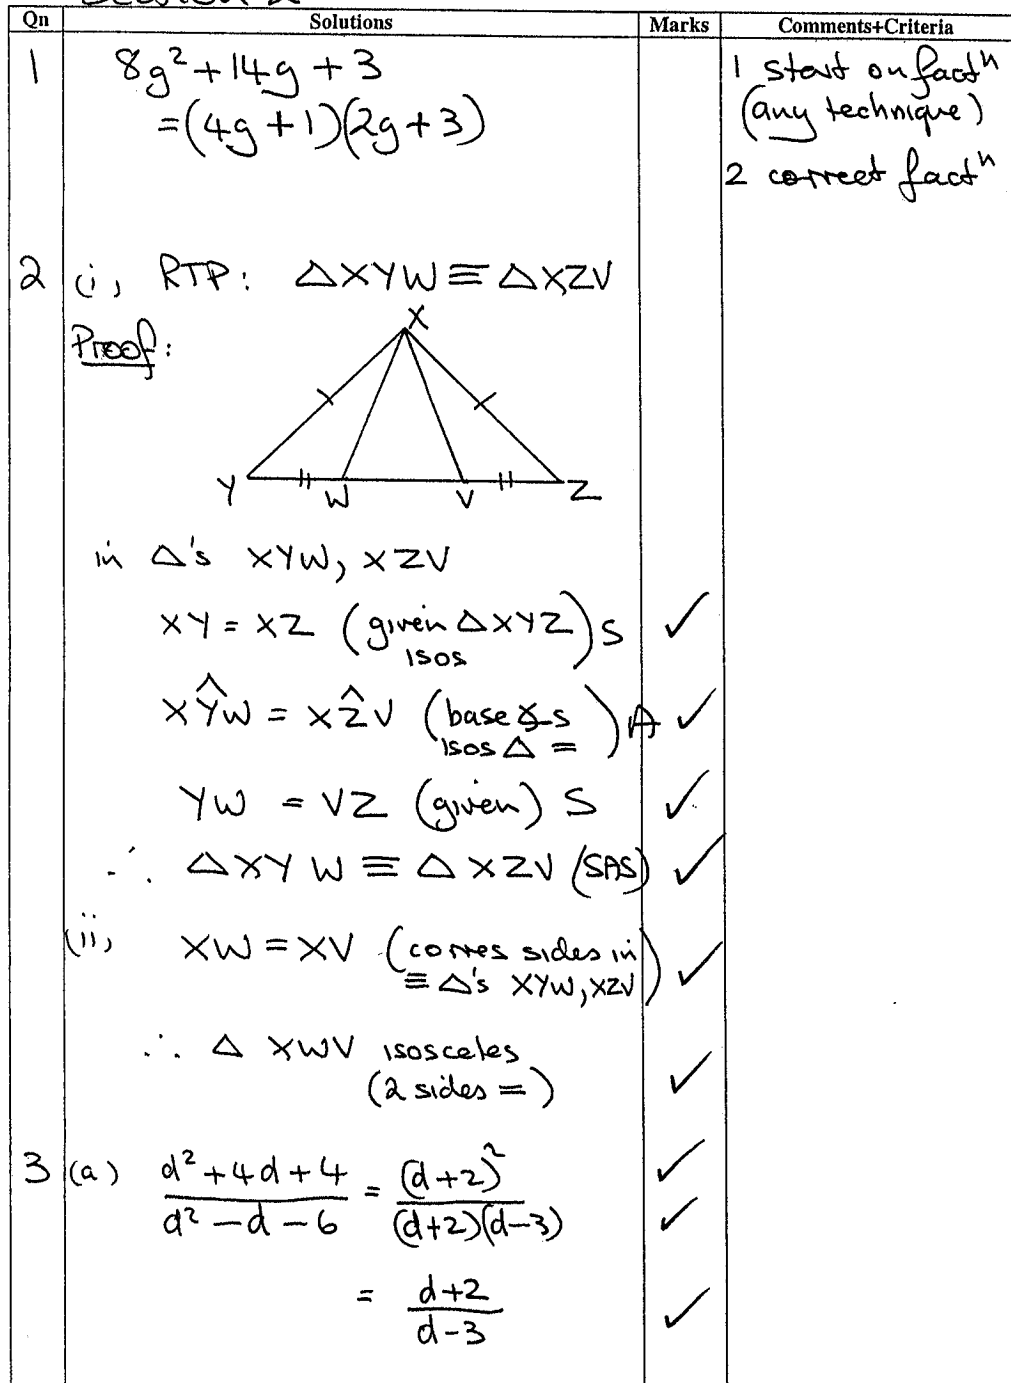 Qn Solutions Marks Comments+Criteria
1 8g² + 14g + 3
= (4g + 1)(2g + 3)
1 start on factⁿ
(any technique)
2 correct factⁿ
2 (i) RTP: △XYW ≡ △XZV
Proof:
X
Y W V Z
in △'s XYW, XZV
XY = XZ (given △XYZ isos) S ✓
XŶW = XẐV (base ∡s isos △ =) A ✓
YW = VZ (given) S ✓
∴ △XYW ≡ △XZV (SAS) ✓
(ii) XW = XV (corres sides in ≡ △'s XYW, XZV) ✓
∴ △ XWV isosceles
(2 sides =) ✓
3 (a) (d² + 4d + 4)/(d² - d - 6) = (d+2)²/((d+2)(d-3)) ✓ ✓
= (d+2)/(d-3) ✓